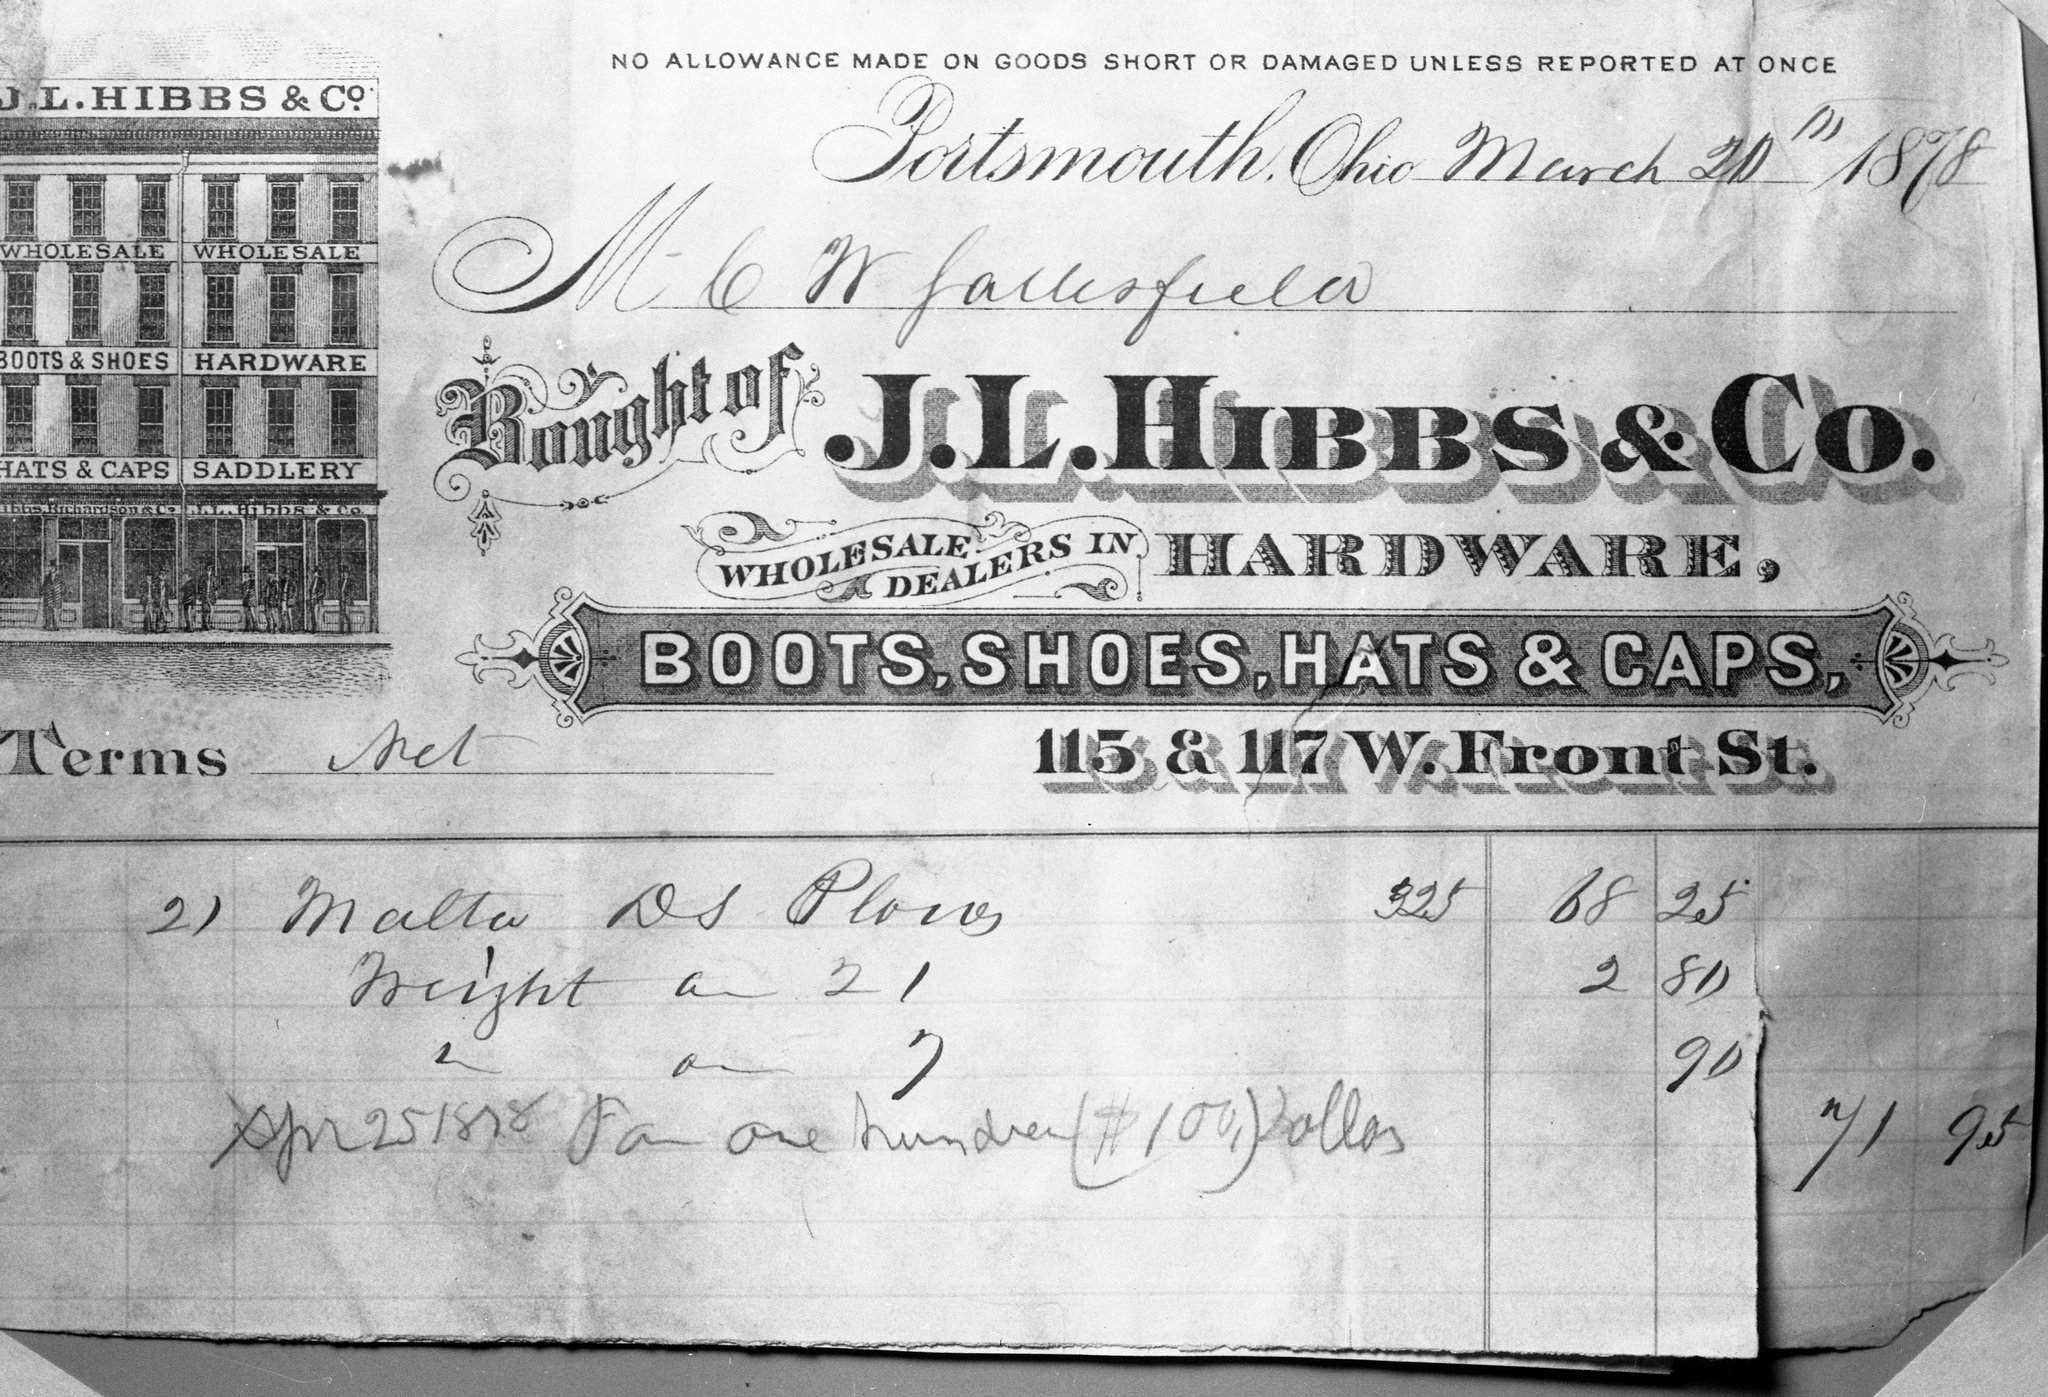 NO ALLOWANCE MADE ON GOODS SHORT OR DAMAGED UNLESS REPORTED AT ONCE
J.L. HIBBS & Co.
WHOLESALE WHOLESALE
BOOTS & SHOES HARDWARE
HATS & CAPS SADDLERY
Hibbs, Richardson & Co. J.L. Hibbs & Co.
Portsmouth, Ohio March 20th 1878
M C W
Bought of J.L. HIBBS & Co.
WHOLESALE DEALERS IN HARDWARE,
BOOTS, SHOES, HATS & CAPS,
115 & 117 W. Front St.
Terms Net
21 Malta DS Plows 325 68 25
Freight on 21 2 80
" on 7 90
71 95
Apr 25 1878 one hundred ($100.) Dollars